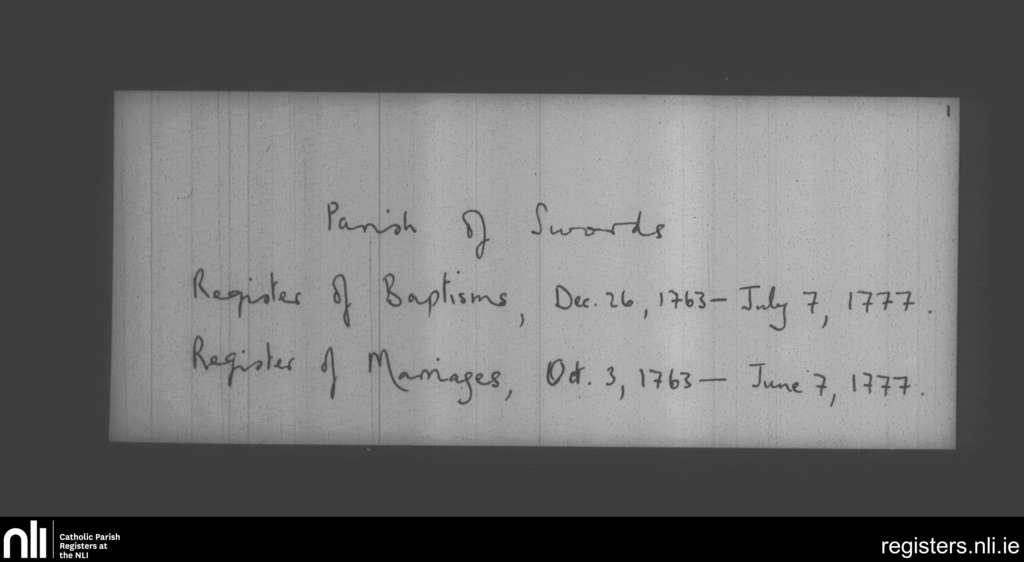 1
Parish of Swords
Register of Baptisms, Dec. 26, 1763 – July 7, 1777.
Register of Marriages, Oct. 3, 1763 – June 7, 1777.
nli
Catholic Parish
Registers at
the NLI
registers.nli.ie